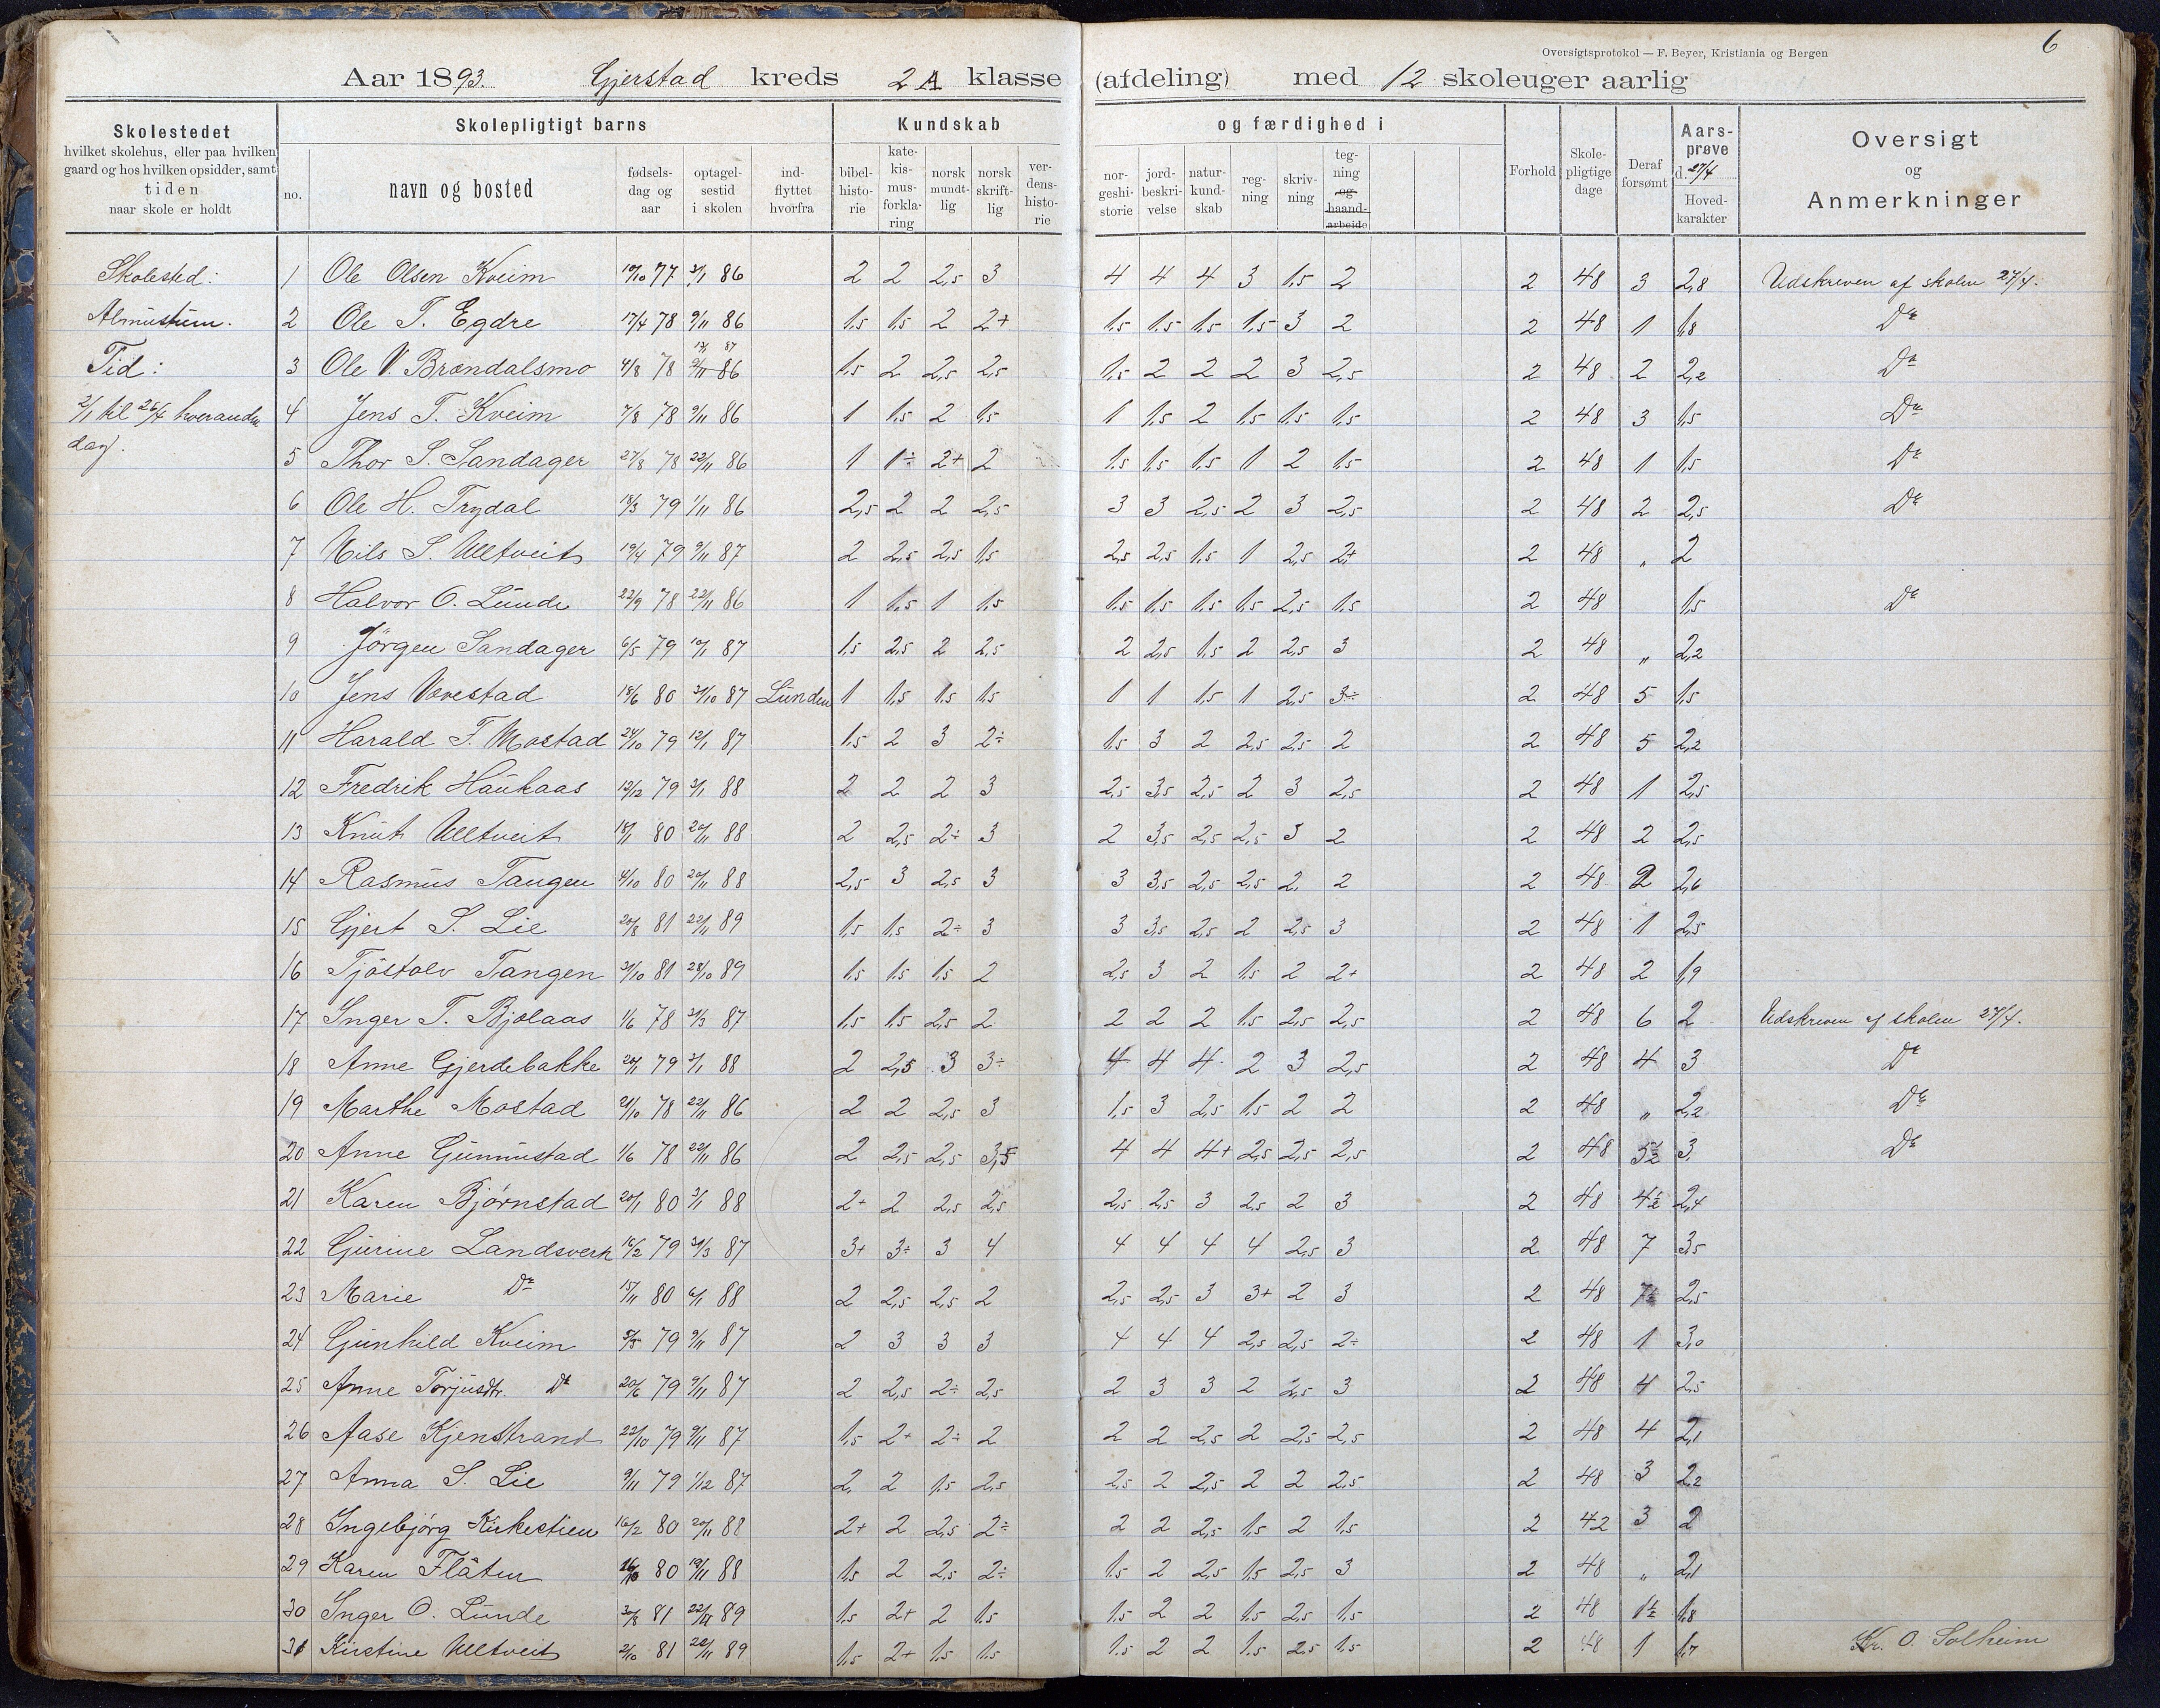 Oversigtsprotokol — F. Beyer, Kristiania og Bergen
6
Aar 1893. Gjerstad kreds 2A klasse (afdeling) med 12 skoleuger aarlig
Skolestedet
hvilket skolehus, eller paa hvilken
gaard og hos hvilken opsidder, samt
tiden
naar skole er holdt
Skolepligtigt barns
no.
navn og bosted
fødsels-
dag og
aar
optagel-
sestid
i skolen
ind-
flyttet
hvorfra
Kundskab og færdighed i
bibel-
histo-
rie
kate-
kis-
mus-
forkla-
ring
norsk
mundt-
lig
norsk
skrift-
lig
ver-
dens-
histo-
rie
nor-
geshi-
storie
jord-
beskri-
velse
natur-
kund-
skab
reg-
ning
skriv-
ning
teg-
ning
og
haand-
arbeide
Forhold
Skole-
pligtige
dage
Deraf
forsømt
Aars-
prøve
d. 27/4
Hoved-
karakter
Oversigt
og
Anmerkninger
Skolested:
Almustum.
Tid:
2/1 til 26/4 hveranden
dag.
1 Ole Olsen Kveim 19/10 77 3/1 86 2 2 2,5 3 4 4 4 3 1,5 2 2 48 3 2,8 Udskreven af skolen 27/4.
2 Ole T. Egdre 17/4 78 9/11 86 1,5 1,5 2 2+ 1,5 1,5 1,5 1,5 3 2 2 48 1 1,8 Do
3 Ole V. Brændalsmo 4/8 78 9/11 86 1,5 2 2,5 2,5 1,5 2 2 2 3 2,5 2 48 2 2,2 Do
4 Jens T. Kveim 7/8 78 9/11 86 1 1,5 2 1,5 1 1,5 2 1,5 1,5 1,5 2 48 3 1,5 Do
5 Thor S. Sandager 27/8 78 22/11 86 1 1÷ 2+ 2 1,5 1,5 1,5 1 2 1,5 2 48 1 1,5 Do
6 Ole H. Trydal 18/3 79 1/11 86 2,5 2 2 2,5 3 3 2,5 2 3 2,5 2 48 2 2,5 Do
7 Nils S. Ulltveit 19/4 79 9/11 87 2 2,5 2,5 1,5 2,5 2,5 1,5 1 2,5 2+ 2 48 " 2
8 Halvor O. Lunde 22/9 78 22/11 86 1 1,5 1 1,5 1,5 1,5 1,5 1,5 2,5 1,5 2 48 1,5 Do
9 Jörgen Sandager 6/5 79 10/1 87 1,5 2,5 2 2,5 2 2,5 1,5 2 2,5 3 2 48 " 2,2
10 Jens Vevestad 18/6 80 31/10 87 Lunden 1 1,5 1,5 1,5 1 1 1,5 1 2,5 3÷ 2 48 5 1,5
11 Harald F. Mostad 24/10 79 12/1 87 1,5 2 3 2÷ 1,5 3 2 2,5 2,5 2 2 48 5 2,2
12 Fredrik Haukaas 12/12 79 3/1 88 2 2 2 3 2,5 3,5 2,5 2 3 2,5 2 48 1 2,5
13 Knut Ulltveit 18/1 80 20/11 88 2 2,5 2÷ 3 2 3,5 2,5 2,5 3 2 2 48 2 2,5
14 Rasmus Tangen 4/10 80 20/11 88 2,5 3 2,5 3 3 3,5 2,5 2,5 2 2 2 48 2 2,6
15 Gjert S. Lie 20/8 81 22/11 89 1,5 1,5 2÷ 3 3 3,5 2,5 2 2,5 3 2 48 1 2,5
16 Tjöstolv Tangen 31/10 81 28/10 89 1,5 1,5 1,5 2 2,5 3 2 1,5 2 2+ 2 48 2 1,9
17 Inger T. Bjølaas 1/6 78 31/3 87 1,5 1,5 2,5 2 2 2 2 1,5 2,5 2,5 2 48 6 2 Udskreven af skolen 27/4.
18 Anne Gjerdebakke 20/1 79 3/1 88 2 2,5 3 3÷ 4 4 4 2 3 2,5 2 48 4 3 Do
19 Marthe Mostad 21/10 78 22/11 86 2 2 2,5 3 1,5 3 2,5 1,5 2 2 2 48 " 2,2 Do
20 Anne Gunnustad 1/6 78 22/11 86 2 2,5 2,5 3,5 4 4 4+ 2,5 2,5 2,5 2 48 5½ 3 Do
21 Karen Bjørnstad 20/1 80 3/1 88 2+ 2 2,5 2,5 2,5 2,5 3 2,5 2 3 2 48 4½ 2,4
22 Gurine Landsverk 16/2 79 31/3 87 3+ 3÷ 3 4 4 4 4 4 2,5 3 2 48 7 3,5
23 Marie Do 15/11 80 6/1 88 2 2,5 2,5 2 2,5 2,5 3 3+ 2 3 2 48 7½ 2,5
24 Gunhild Kveim 5/3 79 9/11 87 2 3 3 3 4 4 4 2,5 2,5 2÷ 2 48 1 3,0
25 Anne Torjusdtr. Do 20/6 79 9/11 87 2 2,5 2÷ 2,5 2 3 3 2 2,5 3 2 48 4 2,5
26 Aase Kjenstrand 22/10 79 9/11 87 1,5 2+ 2÷ 2 2 2 2,5 2 2,5 2,5 2 48 4 2,1
27 Anna S. Lie 9/11 79 1/12 87 2 2 1,5 2,5 2,5 2 2,5 2 2 2,5 2 48 3 2,2
28 Ingebjörg Kirkestien 16/2 80 20/11 88 2+ 2 2,5 2÷ 2 2 2,5 1,5 2 1,5 2 42 3 2
29 Karen Flåten 80 19/11 88 1,5 2 2,5 2÷ 1,5 2 2,5 1,5 2,5 3 2 48 " 2,1
30 Inger O. Lunde 30/8 81 22/11 89 1,5 2+ 2 1,5 1,5 2 2 1,5 2,5 1,5 2 48 1½ 1,8
31 Kirstine Ulltveit 2/10 81 22/11 89 1,5 2+ 1,5 1,5 1,5 2 2 1,5 2,5 1,5 2 48 1 1,7
Kr. O. Solheim